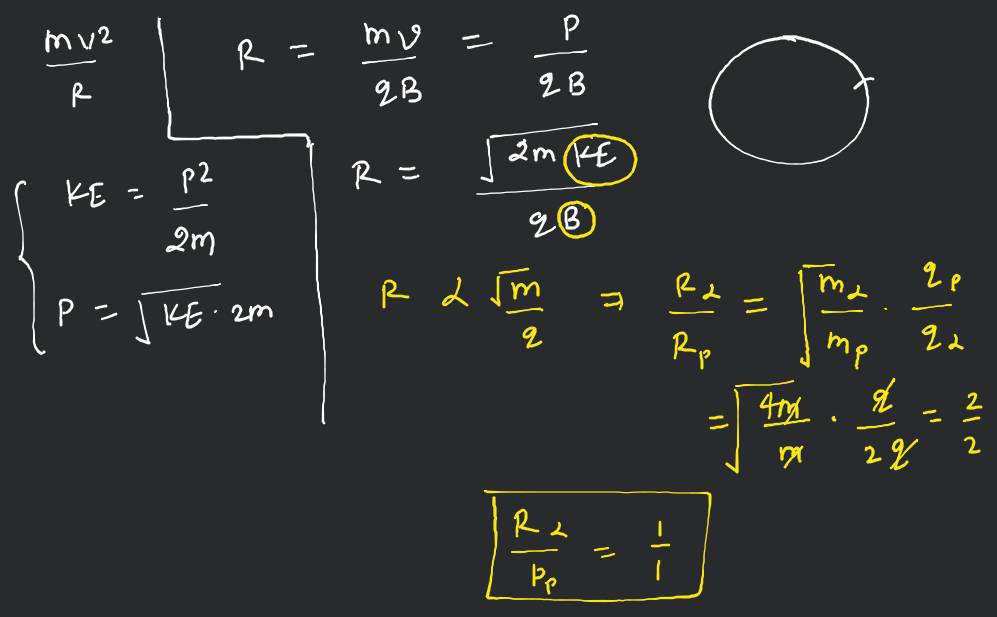 mv²/R
R = mv/qB = P/qB
KE = p²/2m
R = √(2m KE)/qB
P = √(KE · 2m)
R α √m/q ⇒ Rα/Rp = √(mα/mp) · qp/qα
= √(4m/m) · q/2q = 2/2
Rα/Pp = 1/1